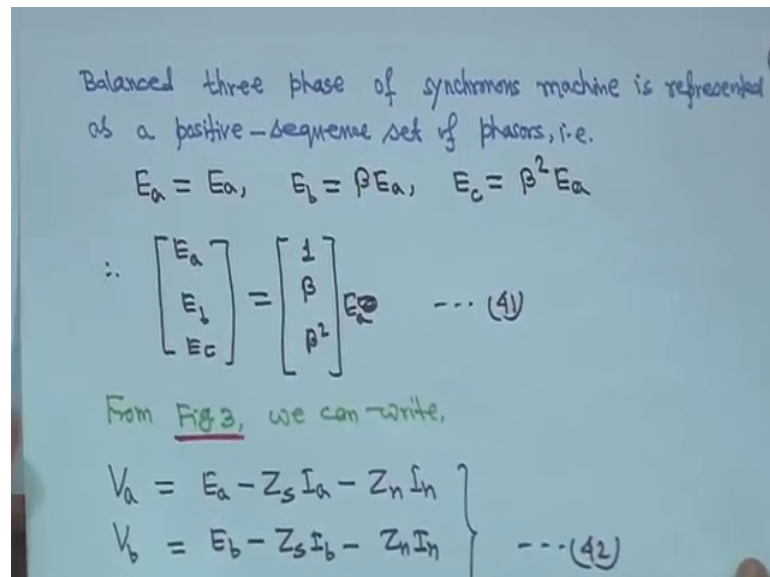 Balanced three phase of synchronous machine is represented
as a positive-sequence set of phasors, i.e.
Ea = Ea, Eb = βEa, Ec = β²Ea
∴ [Ea Eb Ec] = [1 β β²] Ea --- (41)
From Fig 3, we can write,
Va = Ea - Zs Ia - Zn In
Vb = Eb - Zs Ib - Zn In } --- (42)